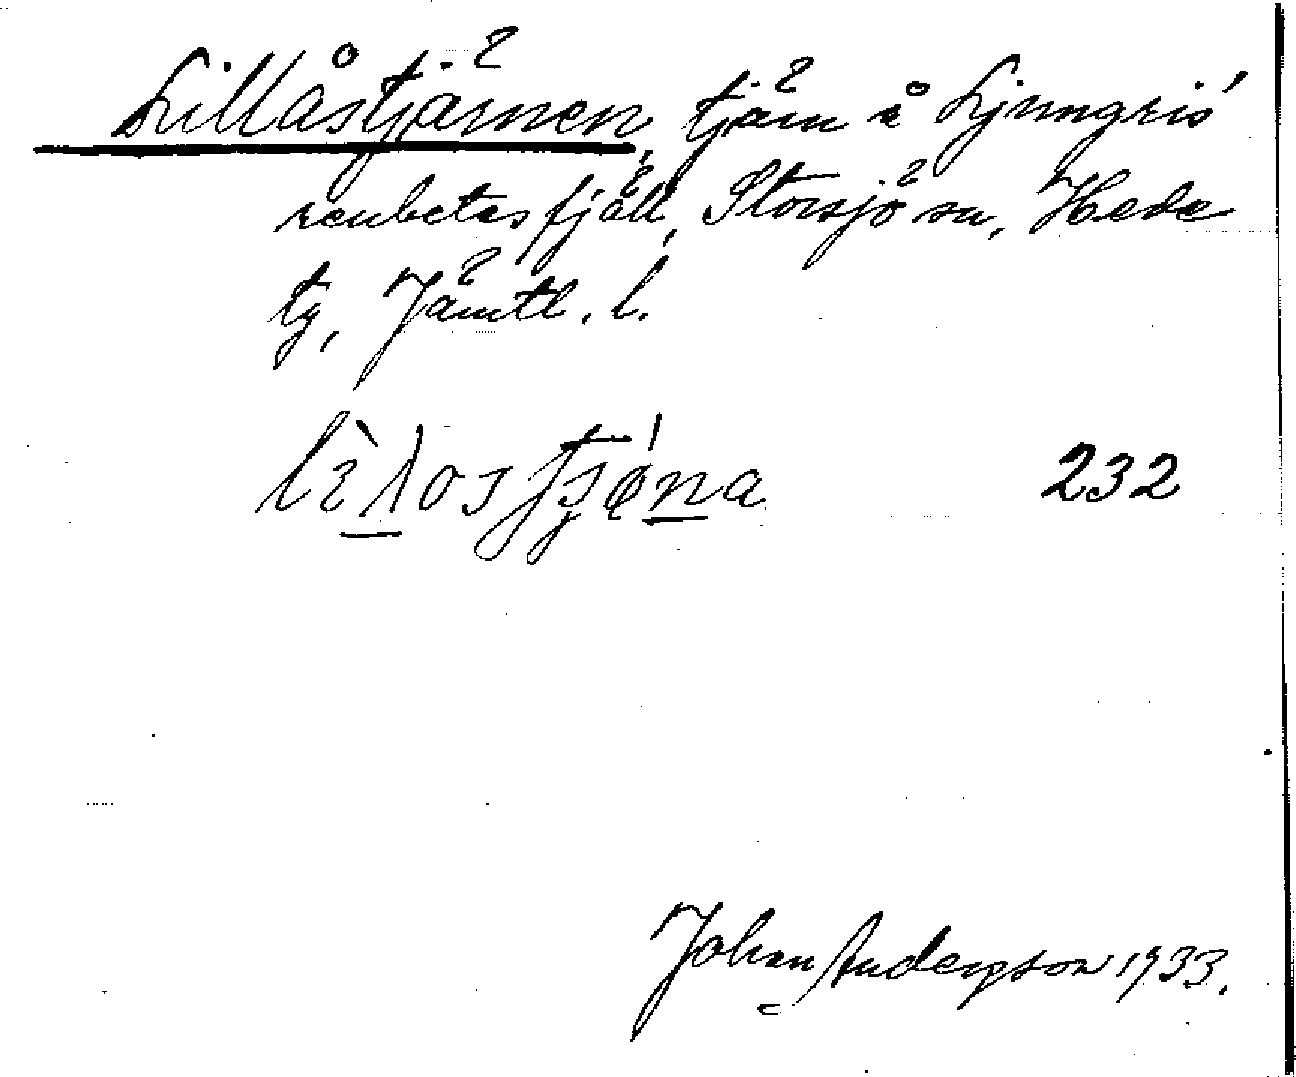 Lillåstjärnen, tjärn å Ljungris
renbetesfjäll, Storsjö sn, Hede
tg, Jämtl. l.
232
Johan Andersson 1933.